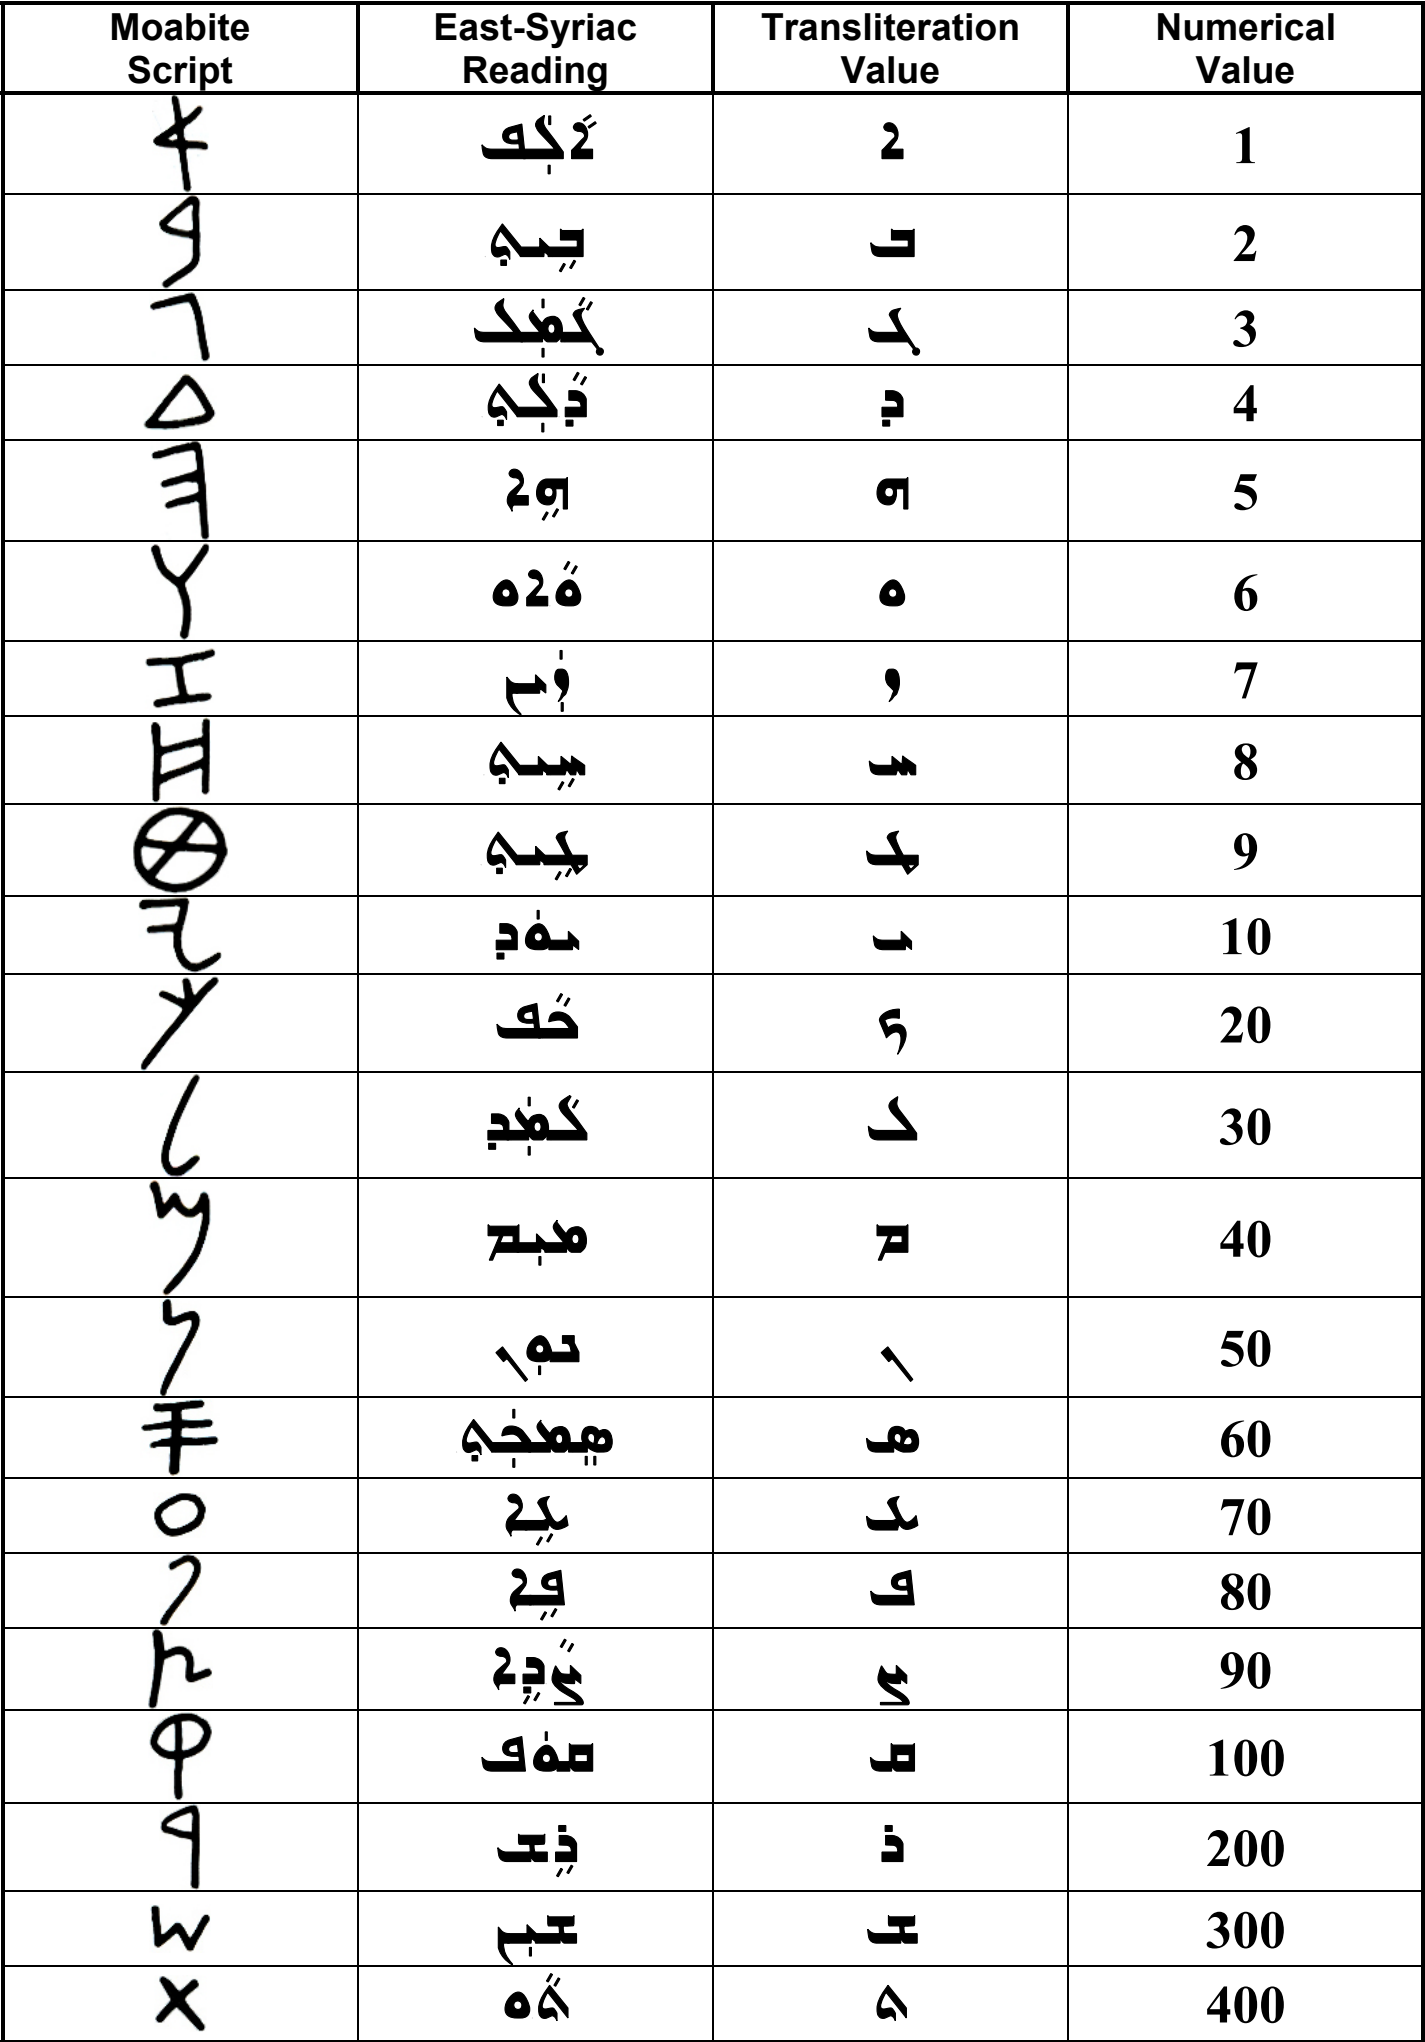 Moabite Script East-Syriac Reading Transliteration Value Numerical Value
𐤀 ܐܵܠܲܦ ܐ 1
𐤁 ܒܹܝܬ ܒ 2
𐤂 ܓܵܡܲܠ ܓ 3
𐤃 ܕܵܠܲܬ ܕ 4
𐤄 ܗܹܐ ܗ 5
𐤅 ܘܵܐܘ ܘ 6
𐤆 ܙܲܝܢ ܙ 7
𐤇 ܚܹܝܬ ܚ 8
𐤈 ܛܹܝܬ ܛ 9
𐤉 ܝܘܿܕ ܝ 10
𐤊 ܟܵܦ ܟ 20
𐤋 ܠܵܡܲܕ ܠ 30
𐤌 ܡܝܼܡ ܡ 40
𐤍 ܢܘܼܢ ܢ 50
𐤎 ܣܸܡܟܲܬ ܣ 60
𐤏 ܥܹܐ ܥ 70
𐤐 ܦܹܐ ܦ 80
𐤑 ܨܵܕܹܐ ܨ 90
𐤒 ܩܘܿܦ ܩ 100
𐤓 ܪܹܫ ܪ 200
𐤔 ܫܝܼܢ ܫ 300
𐤕 ܬܵܘ ܬ 400